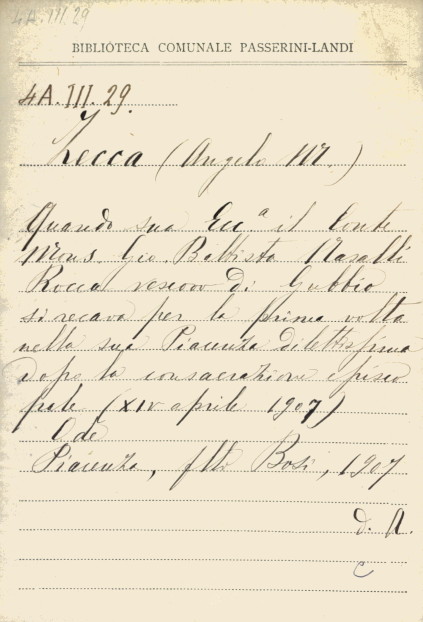 4A.III.29
BIBLIOTECA COMUNALE PASSERINI-LANDI
4A.III.29.
Zecca (Angelo M.)
Quando sua Ecc.ª il Conte
Mons. Gio. Battista Nasalli
Rocca vescovo di Gubbio
si recava per la prima volta
nella sua Piacenza dilettissima
dopo la consacrazione episco
pale (XIV aprile 1907)
Ode
Piacenza, f.lli Bosi, 1907
d. A.
C